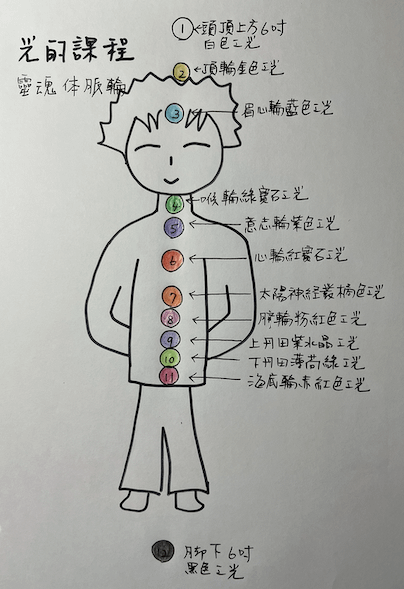 光的課程
靈魂体脈輪
① 頭頂上方6吋
白色之光
② 頂輪金色之光
③ 眉心輪藍色之光
④ 喉輪綠寶石之光
⑤ 意志輪紫色之光
⑥ 心輪紅寶石之光
⑦ 太陽神経叢橘色之光
⑧ 臍輪粉紅色之光
⑨ 上丹田紫水晶之光
⑩ 下丹田薄荷綠之光
⑪ 海底輪赤紅色之光
⑫ 脚下6吋
黑色之光